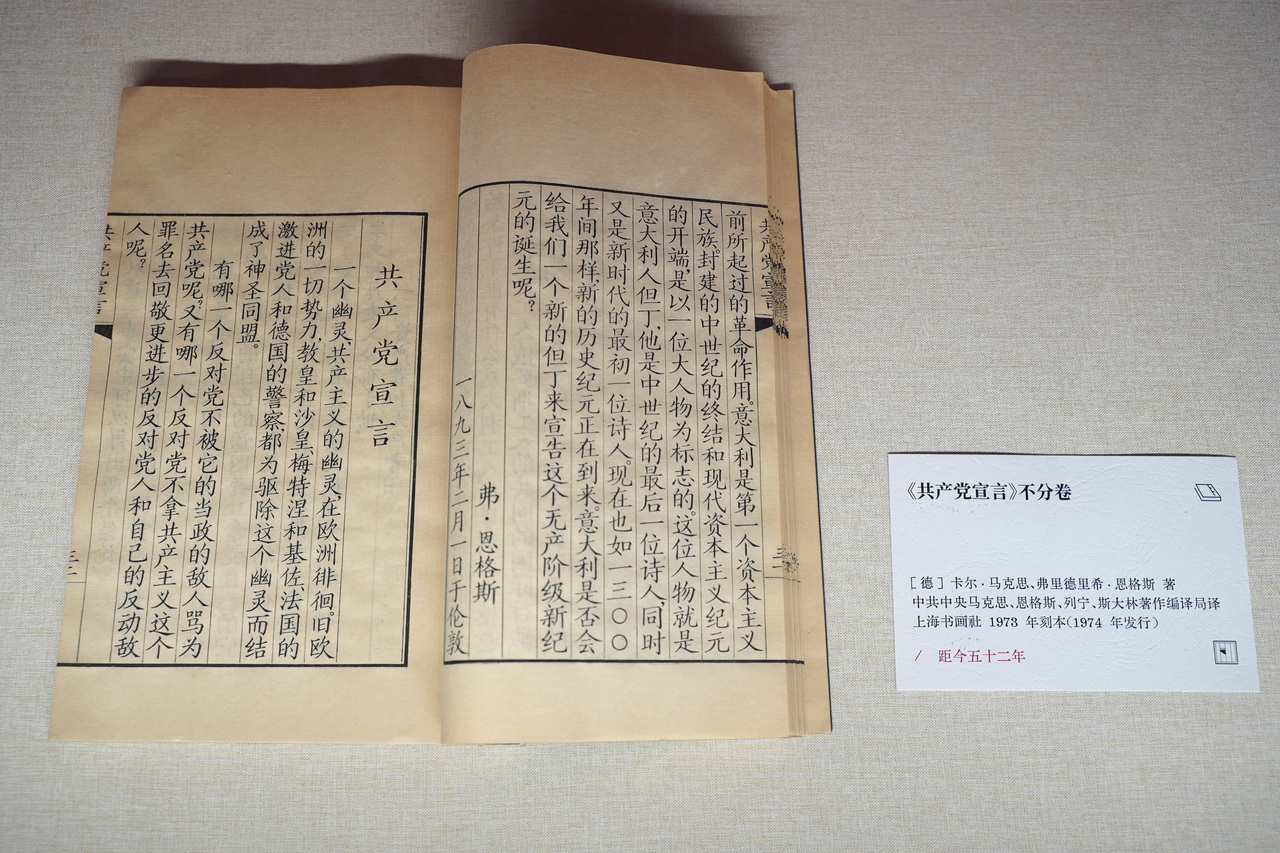 共产党宣言
前所起过的革命作用。意大利是第一个资本主义
民族。封建的中世纪的终结和现代资本主义纪元
的开端,是以一位大人物为标志的。这位人物就是
意大利人但丁,他是中世纪的最后一位诗人,同时
又是新时代的最初一位诗人。现在也如一三〇〇
年间那样,新的历史纪元正在到来。意大利是否会
给我们一个新的但丁来宣告这个无产阶级新纪
元的诞生呢?
弗·恩格斯
一八九三年二月一日于伦敦
共产党宣言
一个幽灵,共产主义的幽灵,在欧洲徘徊。旧欧
洲的一切势力,教皇和沙皇,梅特涅和基佐,法国的
激进党人和德国的警察,都为驱除这个幽灵而结
成了神圣同盟。
有哪一个反对党不被它的当政的敌人骂为
共产党呢?又有哪一个反对党不拿共产主义这个
罪名去回敬更进步的反对党人和自己的反动敌
人呢?
共产党宣言
《共产党宣言》不分卷
[德] 卡尔·马克思、弗里德里希·恩格斯 著
中共中央马克思、恩格斯、列宁、斯大林著作编译局译
上海书画社 1973 年刻本(1974 年发行)
/ 距今五十二年